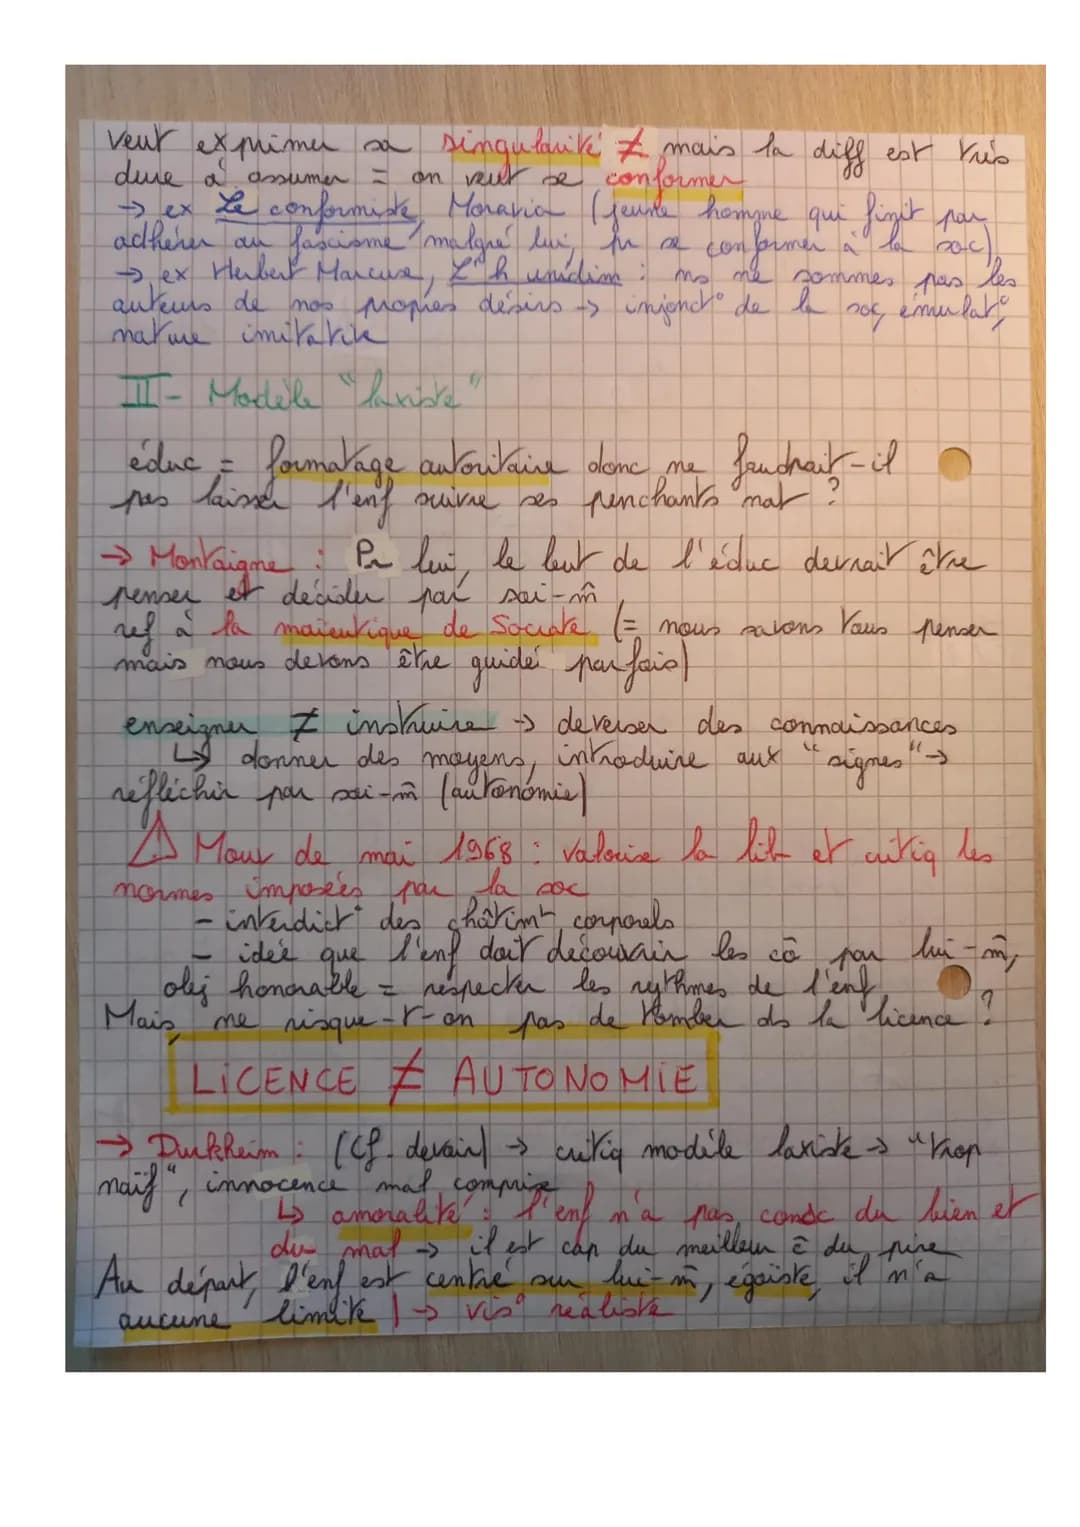 veut exprimer sa singularité ≠ mais la diff est très
dure à assumer = on veut se conformer
→ ex Le conformiste, Moravia (jeune homme qui finit par
adhérer au fascisme malgré lui, pr se conformer à la soc)
→ ex Herbert Marcuse, L'h unidim : ns ne sommes pas les
auteurs de nos propres désirs → injonct° de la soc, émulat°,
nature imitative
II - Modèle "laxiste"
éduc = formatage autoritaire donc ne faudrait-il
pas laisser l'enf suivre ses penchants nat ?
→ Montaigne : Pr lui, le but de l'éduc devrait être
penser et décider par soi-m̂
ref à la maïeutique de Socrate (= nous savons tous penser
mais nous devons être guidé parfois)
enseigner ≠ instruire → déverser des connaissances
↳ donner des moyens, introduire aux "signes" →
réfléchir par soi-m̂ (autonomie)
⚠ Mouv de mai 1968 : valorise la lib et critiq les
normes imposées par la soc
- interdict° des châtimt corporels
- idée que l'enf doit découvrir les cō par lui-m̂,
obj honorable = respecter les rythmes de l'enf
Mais, ne risque-t-on pas de tomber ds la licence ?
LICENCE ≠ AUTONOMIE
→ Durkheim : (Cf. devoir) → critiq modèle laxiste → "trop
naïf", innocence mal comprise
↳ amoralité : l'enf n'a pas consc du bien et
du mal → il est cap du meilleur c̄ du pire
Au départ, l'enf est centré sur lui-m̂, égoïste, il n'a
aucune limite | → vis° réaliste